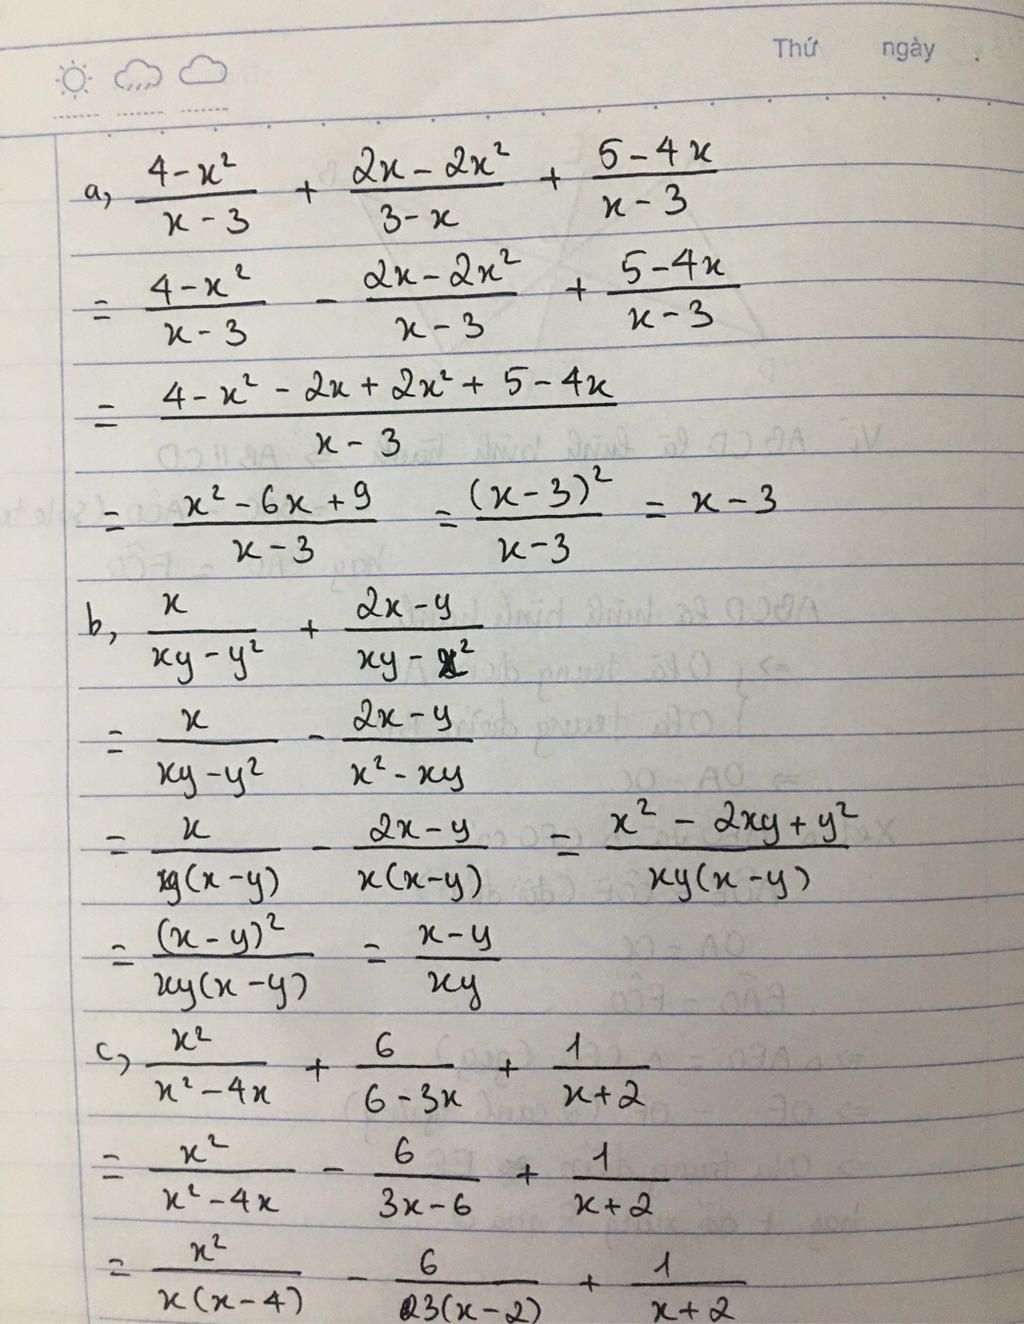 Thứ ngày .
a, (4 - x²)/(x - 3) + (2x - 2x²)/(3 - x) + (5 - 4x)/(x - 3)
= (4 - x²)/(x - 3) - (2x - 2x²)/(x - 3) + (5 - 4x)/(x - 3)
= (4 - x² - 2x + 2x² + 5 - 4x)/(x - 3)
= (x² - 6x + 9)/(x - 3) = (x - 3)²/(x - 3) = x - 3
b, x/(xy - y²) + (2x - y)/(xy - x²)
= x/(xy - y²) - (2x - y)/(x² - xy)
= x/(y(x - y)) - (2x - y)/(x(x - y)) = (x² - 2xy + y²)/(xy(x - y))
= (x - y)²/(xy(x - y)) = (x - y)/(xy)
c, x²/(x² - 4x) + 6/(6 - 3x) + 1/(x + 2)
= x²/(x² - 4x) - 6/(3x - 6) + 1/(x + 2)
= x²/(x(x - 4)) - 6/(3(x - 2)) + 1/(x + 2)